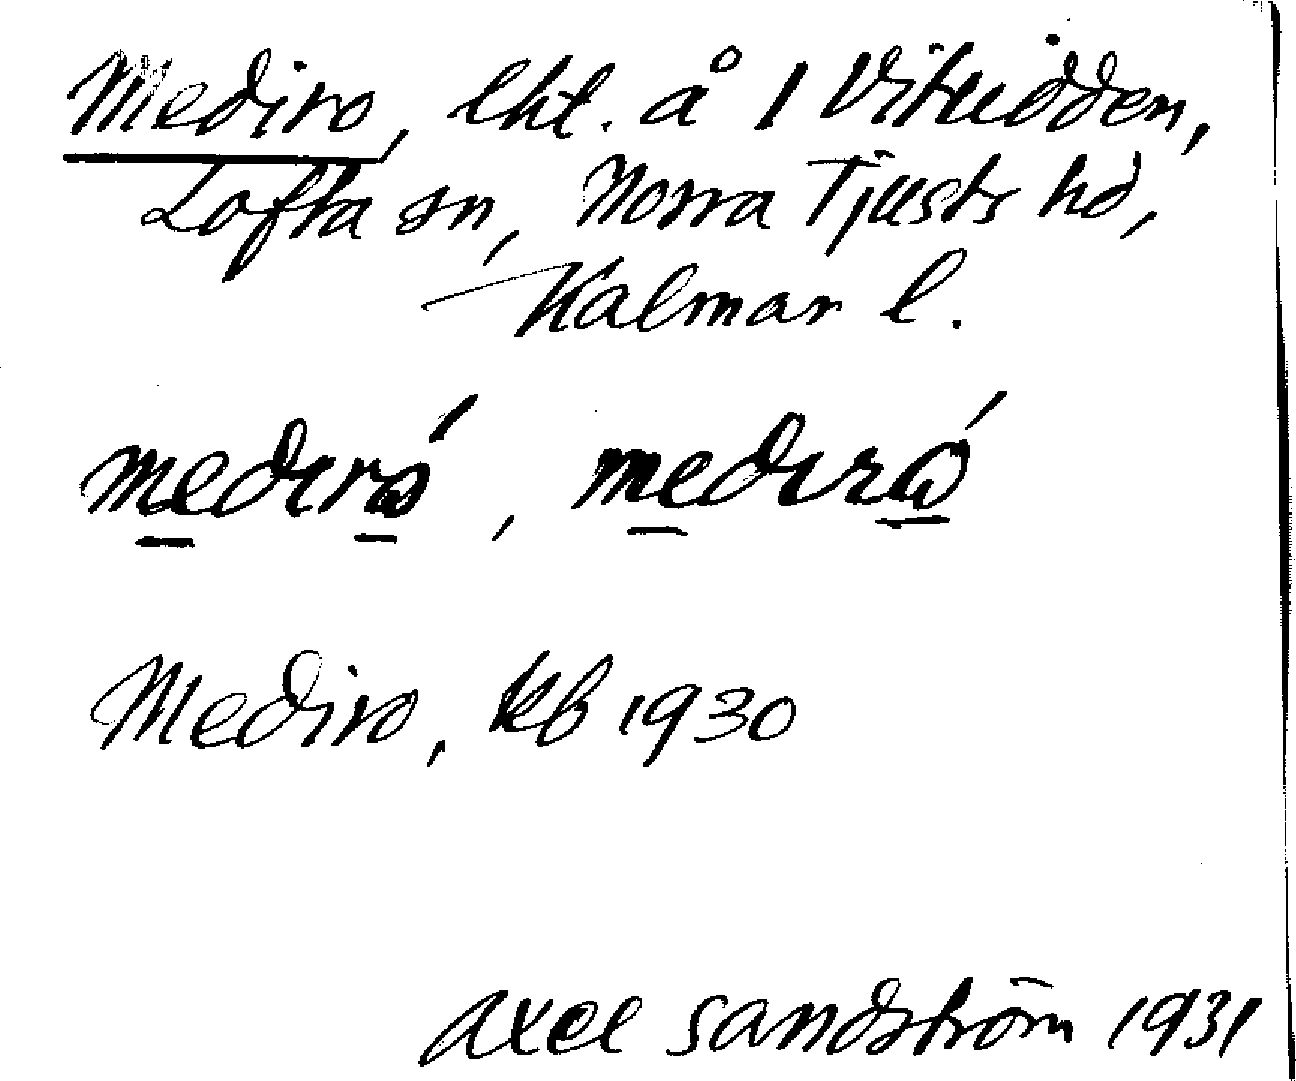 Mediro, lht. å 1 Vituidden,
Lofta sn, Norra Tjusts hd,
Kalmar l.
medıró, medıró
Mediro, kb 1930
Axel Sandström 1931